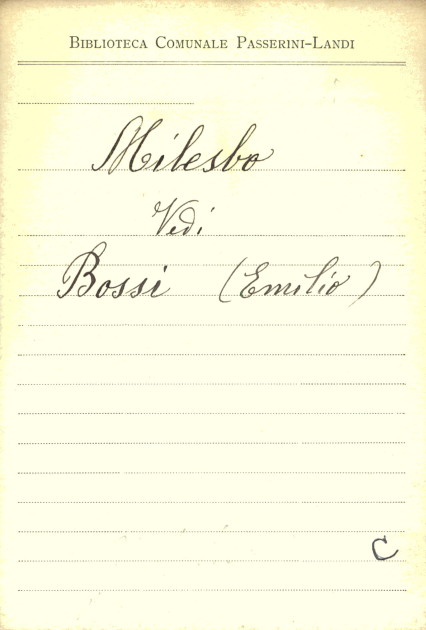 Biblioteca Comunale Passerini-Landi
Milesbo
Vedi
Bossi (Emilio)
C